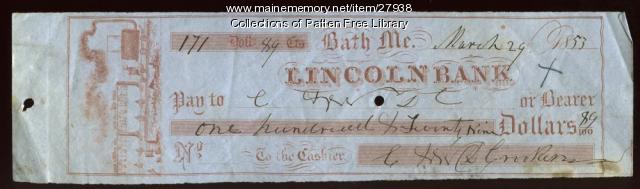 www.mainememory.net/item/27938
Collections of Patten Free Library
171 Doll 89 Cts Bath Me. March 29 1853
LINCOLN BANK
Pay to C or Bearer
one hundred & Dollars 89/100
No. To the Cashier. C